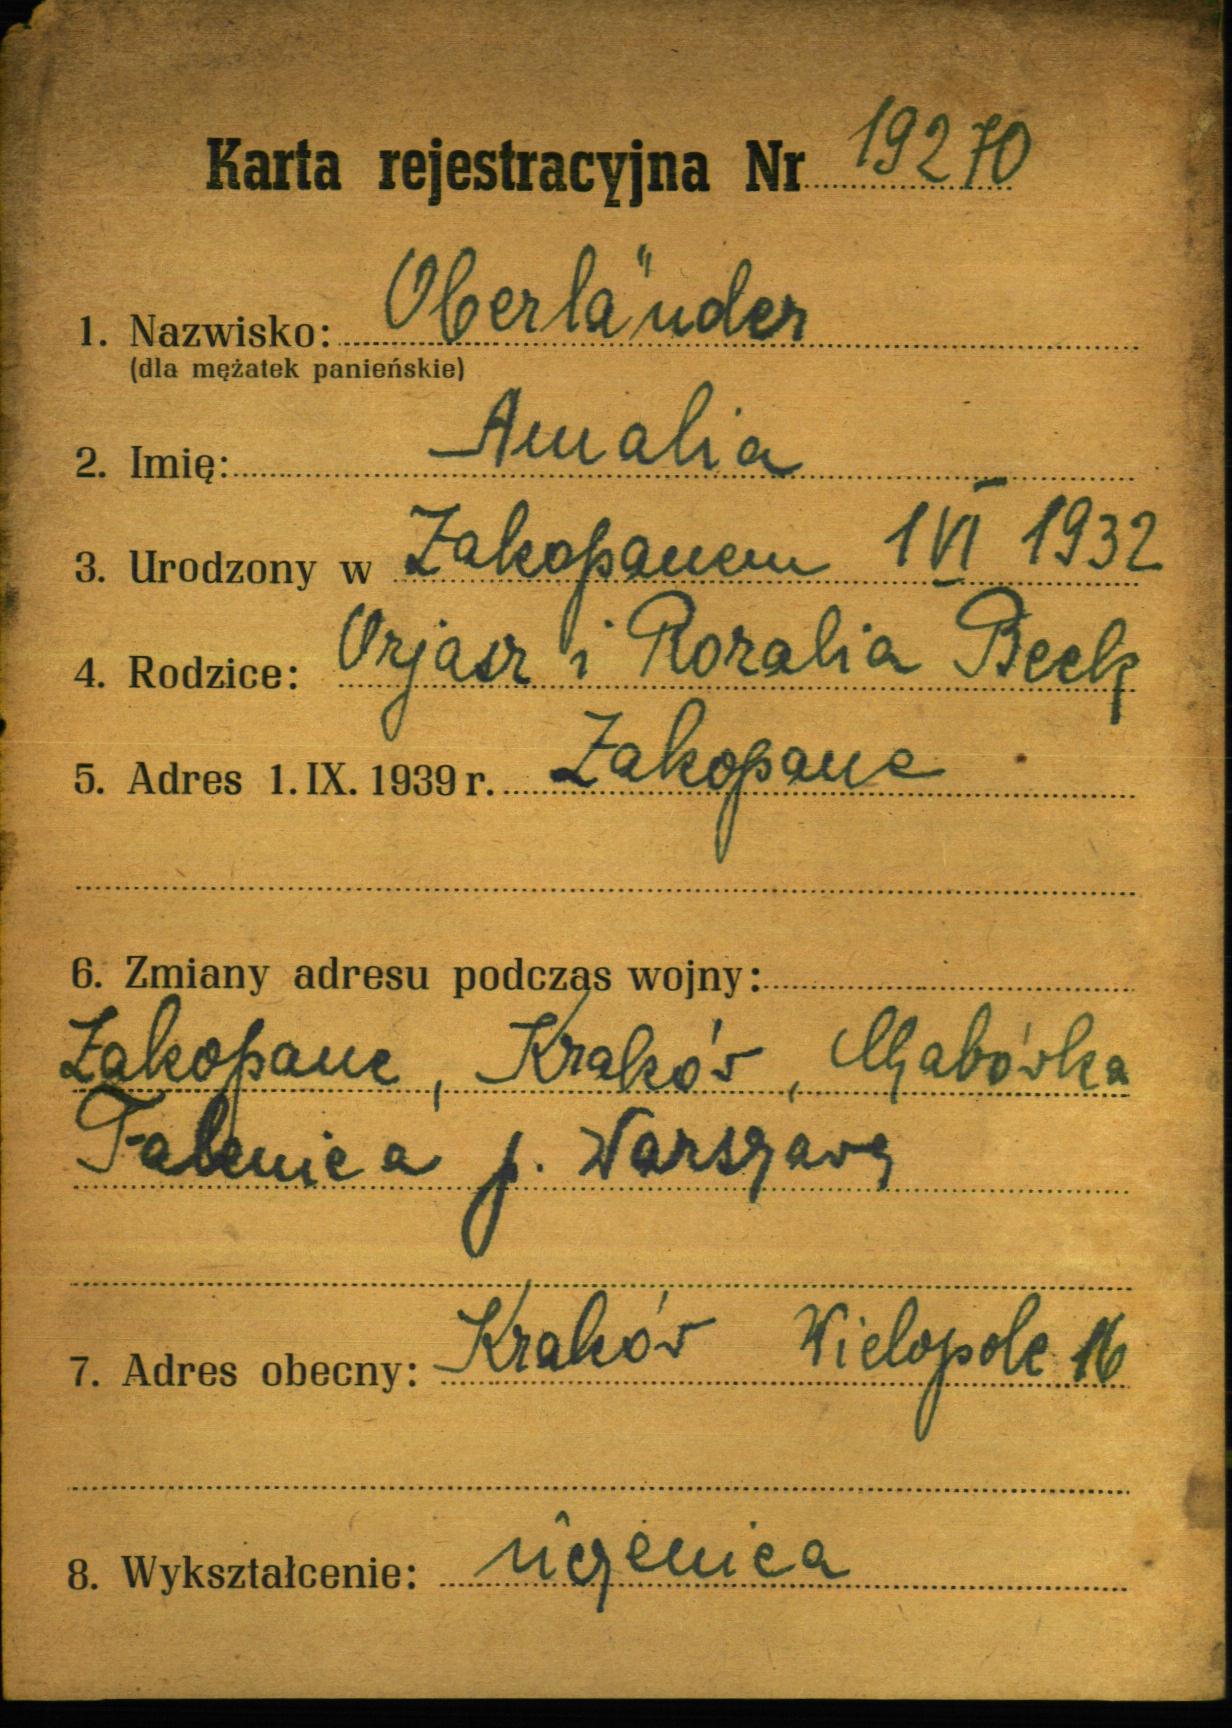 Karta rejestracyjna Nr 19270
1. Nazwisko: Oberländer
(dla mężatek panieńskie)
2. Imię: Amalia
3. Urodzony w Zakopanem 1 VI 1932
4. Rodzice: Orjasz i Rozalia Beck
5. Adres 1. IX. 1939 r. Zakopane
6. Zmiany adresu podczas wojny:
Zakopane, Kraków,
Falenica p. Warszawą
7. Adres obecny: Kraków Wielopole 16
8. Wykształcenie: uczenica